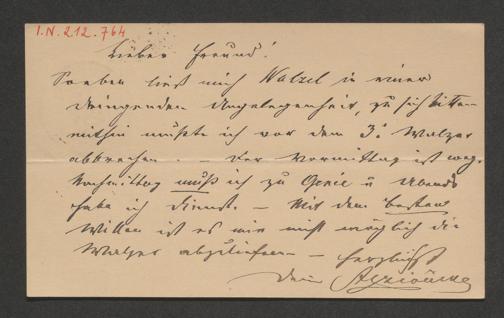 I.N. 212.764
Lieber Freund!
Soeben ließ mich Watzel in einer
dringenden Angelegenheit, zu sich bitten
mithin mußte ich vor dem 3. Walzer
abbrechen. – Der Vormittag ist weg.
Nachmittag muß ich zu Genée u Abends
habe ich Dienst. – Mit dem besten
Willen ist es mir nicht möglich die
Walzer abzuliefern – herzlichst
Dein